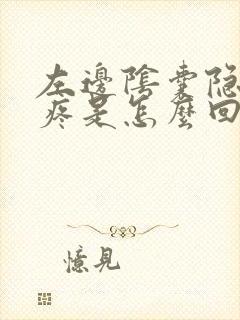 左邊陰囊隐
疼是怎麼回
憶見